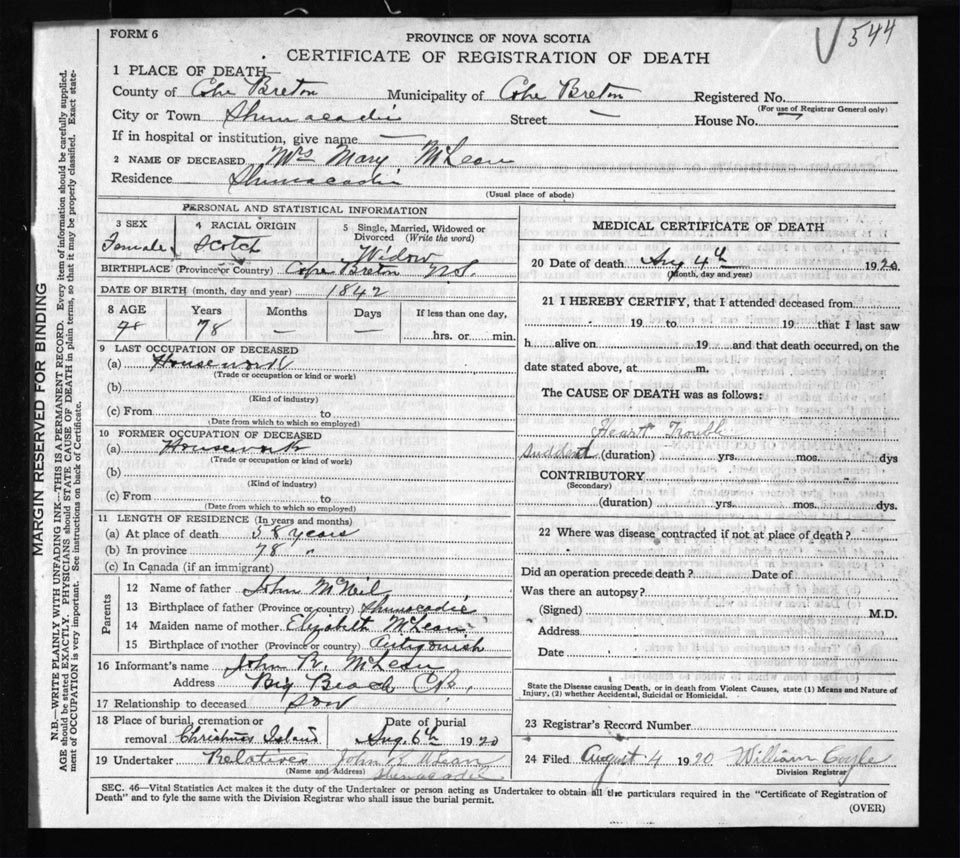 544
FORM 6
PROVINCE OF NOVA SCOTIA
CERTIFICATE OF REGISTRATION OF DEATH
1 PLACE OF DEATH—
County of Cape Breton Municipality of Cape Breton Registered No.
(For use of Registrar General only)
City or Town Shunacadie Street — House No.
If in hospital or institution, give name —
2 NAME OF DECEASED Mrs Mary McLean
Residence Shunacadie
(Usual place of abode)
PERSONAL AND STATISTICAL INFORMATION
3 SEX Female
4 RACIAL ORIGIN Scotch
5 Single, Married, Widowed or Divorced (Write the word) Widow
BIRTHPLACE (Province or Country) Cape Breton N.S.
DATE OF BIRTH (month, day and year) 1842
8 AGE Years Months Days If less than one day,
78 78 — — hrs. or min.
9 LAST OCCUPATION OF DECEASED
(a) Housework
(Trade or occupation or kind or work)
(b)
(Kind of industry)
(c) From to
(Date from which to which so employed)
10 FORMER OCCUPATION OF DECEASED
(a) Housework
(Trade or occupation or kind of work)
(b)
(Kind of industry)
(c) From to
(Date from which to which so employed)
11 LENGTH OF RESIDENCE (In years and months)
(a) At place of death 58 years
(b) In province 78 "
(c) In Canada (if an immigrant)
Parents
12 Name of father John McNeil
13 Birthplace of father (Province or country) Shunacadie
14 Maiden name of mother Elizabeth McLean
15 Birthplace of mother (Province or country) Antigonish
16 Informant's name John R. McLean
Address Big Beach C.B.
17 Relationship to deceased Son
18 Place of burial, cremation or removal Christmas Island
Date of burial Aug. 6th 1920
19 Undertaker Relatives John R McLean
(Name and Address) Shenacadie
MEDICAL CERTIFICATE OF DEATH
20 Date of death Aug 4th 1920
(Month, day and year)
21 I HEREBY CERTIFY, that I attended deceased from
19 to 19 that I last saw
h alive on 19 and that death occurred, on the
date stated above, at m.
The CAUSE OF DEATH was as follows:
Heart Trouble
Sudden (duration) yrs. mos. dys
CONTRIBUTORY
(Secondary)
(duration) yrs. mos. dys.
22 Where was disease contracted if not at place of death?
Did an operation precede death? Date of
Was there an autopsy?
(Signed) M.D.
Address
Date
State the Disease causing Death, or in death from Violent Causes, state (1) Means and Nature of
Injury, (2) whether Accidental, Suicidal or Homicidal.
23 Registrar's Record Number
24 Filed August 4 1920 William Coyle
Division Registrar
SEC. 46—Vital Statistics Act makes it the duty of the Undertaker or person acting as Undertaker to obtain all the particulars required in the "Certificate of Registration of
Death" and to fyle the same with the Division Registrar who shall issue the burial permit.
(OVER)
MARGIN RESERVED FOR BINDING
N.B.—WRITE PLAINLY WITH UNFADING INK—THIS IS A PERMANENT RECORD. Every item of information should be carefully supplied.
AGE should be stated EXACTLY. PHYSICIANS should STATE CAUSE OF DEATH in plain terms, so that it may be properly classified. Exact state-
ment of OCCUPATION is very important. See instructions on back of Certificate.